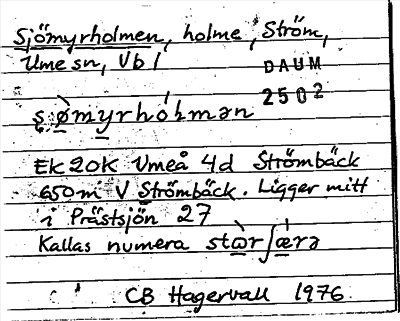 Sjömyrholmen, holme, Ström,
Ume sn, Vb l
DAUM
2502
ş ø̀myrhólmən
EK 20K Umeå 4d Strömbäck
650 m V Strömbäck. Ligger mitt
i Prästsjön 27
Kallas numera
CB Hagervall 1976